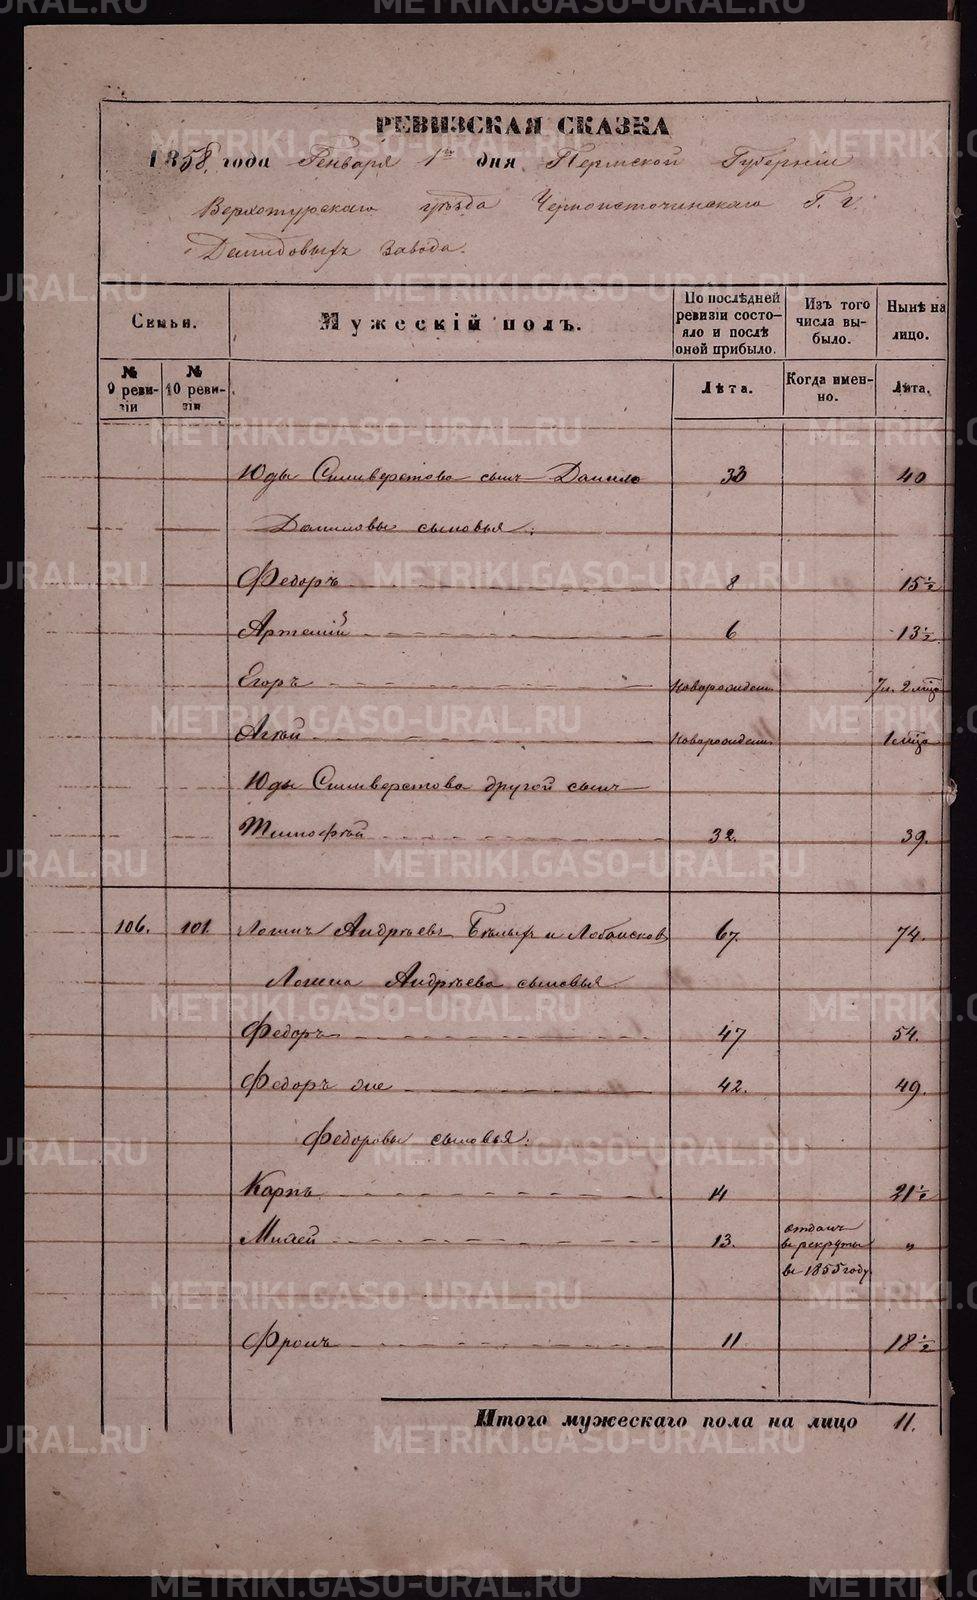 РЕВИЗСКАЯ СКАЗКА
1858 года Генваря 1го дня Пермской Губернии
Верхотурскаго уѣзда Черноисточинскаго Г. г.
Демидовыхъ завода.
Семьи.
Мужескій полъ.
По послѣдней ревизіи состояло и послѣ оной прибыло.
Изъ того числа выбыло.
Нынѣ на лицо.
№ 9 ревизіи
№ 10 ревизіи
Лѣта.
Когда именно.
Лѣта.
Юды Силиверстова сынъ Данило 33 40
Даниловы сыновья:
Федоръ 8 15½
Артемій 6 13½
Егоръ новорожден. 7 л. 2 мѣс
Агѣй новорожден. 1 мѣс
Юды Силиверстова другой сынъ
Тимофѣй 32. 39.
106. 101 Логинъ Андрѣевъ Бѣлыхъ и Лобансков 67. 74.
Логина Андрѣева сыновья
Федоръ 47 54.
Федоръ же 42. 49.
Федоровы сыновья:
Карпъ 14 21½
Михей 13. отданъ в рекруты в 1855 году „
Фролъ 11 18½
Итого мужескаго пола на лицо 11.
METRIKI.GASO-URAL.RU